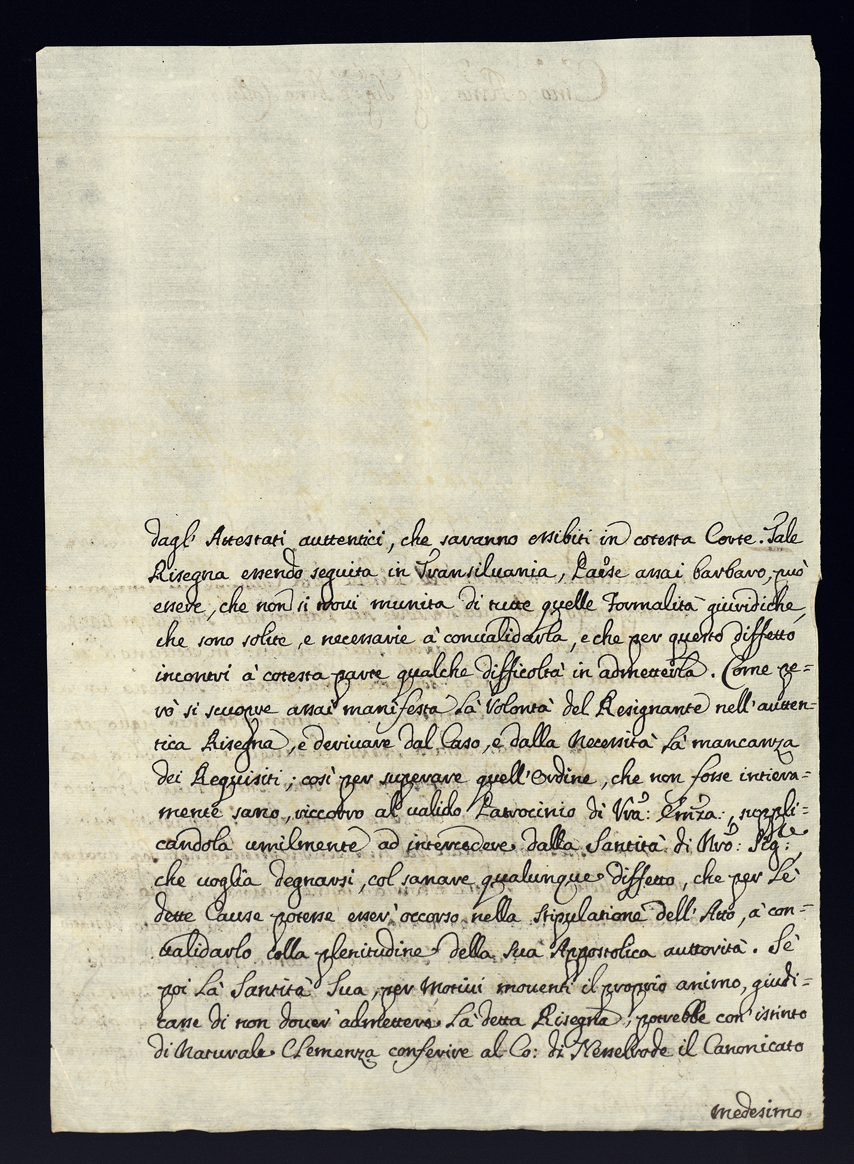 dagl' Attestati auttentici, che saranno essibiti in cotesta Corte. Tale
Risegna essendo seguita in Transiluania, Paese assai barbaro, può
essere, che non si trovi munita di tutte quelle Formalità giuridiche,
che sono solite, e necessarie à conualidarla, e che per questo diffetto
incontri à cotesta parte qualche difficoltà in admetterla. Come pe=
rò si scuopre assai manifesta La Volontà del Resignante nell'autten=
tica Risegna, e deriuare dal Caso, e dalla Necessità La mancanza
dei Requisiti; così per superare quell'Ordine, che non fosse intiera=
mente sano, riccorro al ualido Patrocinio di Vra: Emza:, suppli=
candola umilmente ad intercedere dalla Santità di Nro: Sig:re,
che uoglia degnarsi, col sanare qualunque diffetto, che per Le
dette Cause potesse esser' occorso nella Stipulatione dell'Atto, à con=
ualidarlo colla plenitudine della Sua Appostolica auttorità. Se
poi La Santità Sua, per Motiui mouenti il proprio animo, giudi=
casse di non douer' admettere La detta Risegna; potrebbe con' istinto
di Naturale CLemenza conferire al Co: di Nesselrode il Canonicato
medesimo